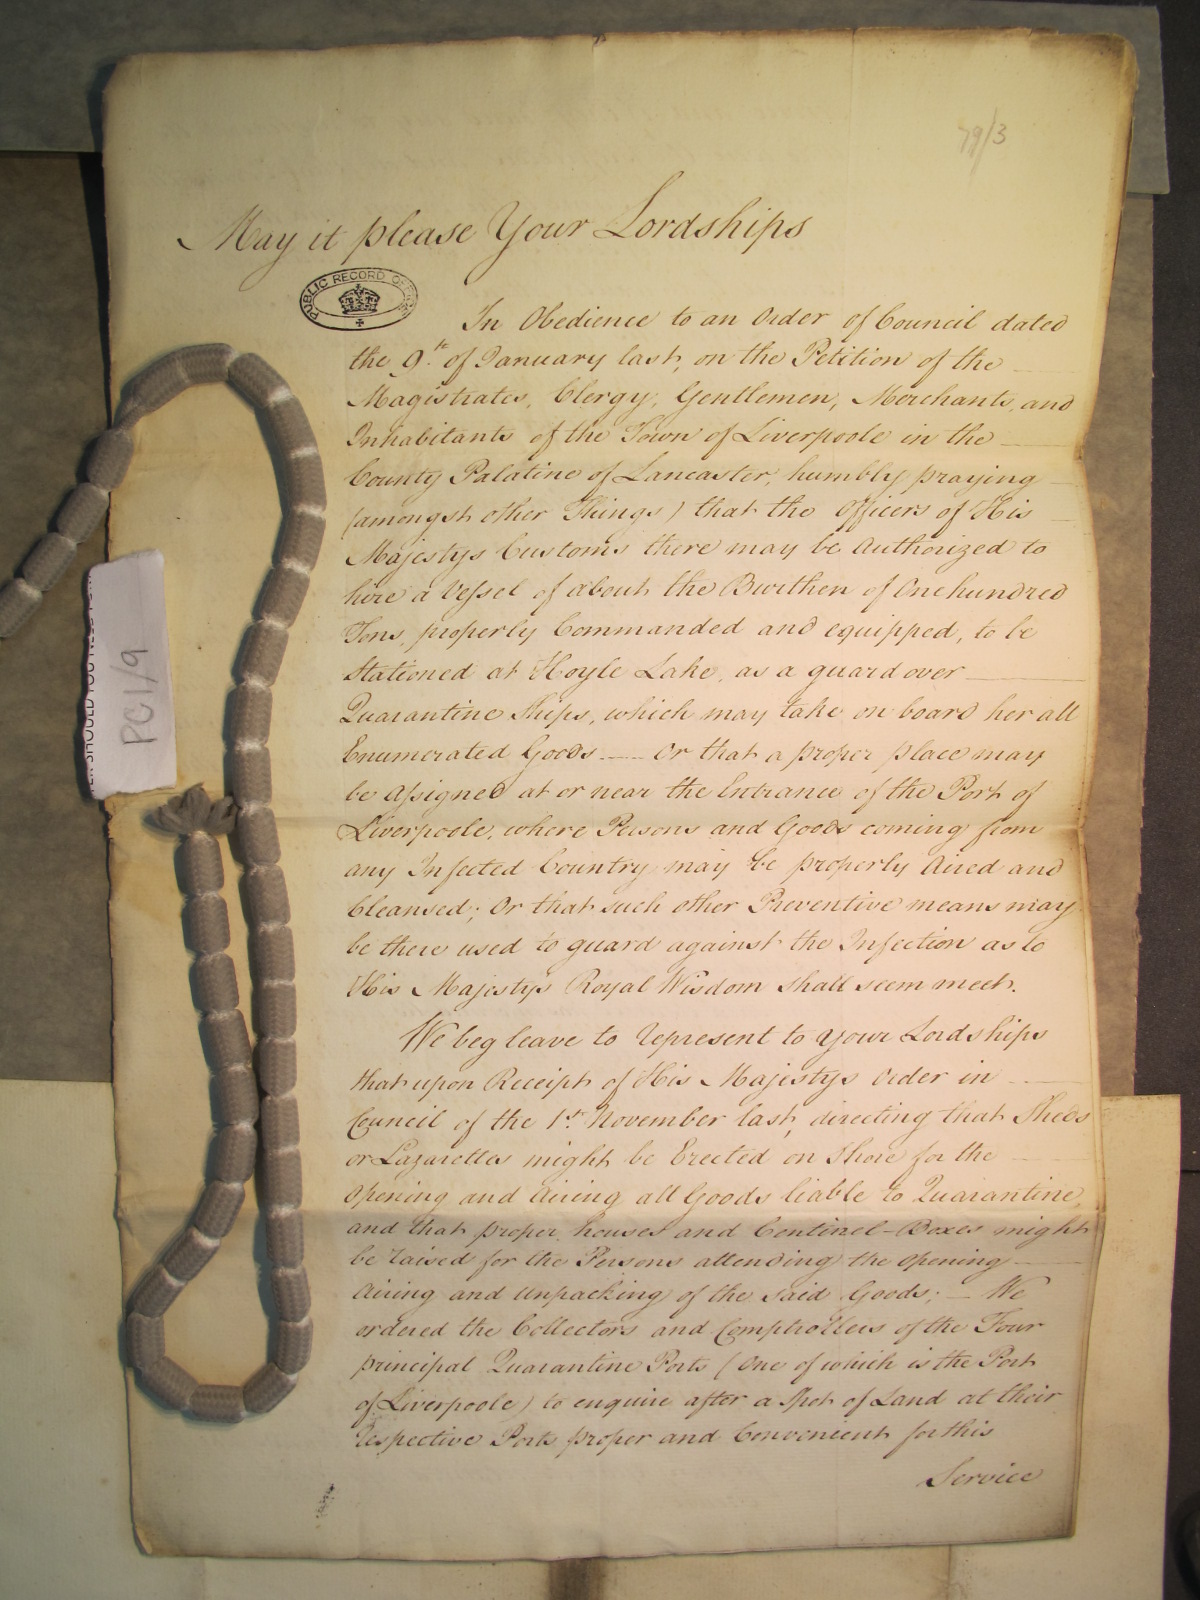 79/3
May it please Your Lordships
PUBLIC RECORD OFFICE
In Obedience to an Order of Council dated
the 9th. of January last, on the Petition of the
Magistrates, Clergy, Gentlemen, Merchants, and
Inhabitants of the Town of Liverpoole in the
County Palatine of Lancaster, humbly praying
(amongst other Things) that the Officers of His
Majestys Customs there may be Authorized to
hire a Vessel of about the Burthen of One hundred
Tons, properly Commanded and equipped, to be
Stationed at Hoyle Lake, as a guard over
Quarantine Ships, which may take on board her all
Enumerated Goods — Or that a proper place may
be Assigned at or near the Entrance of the Port of
Liverpoole, where Persons and Goods coming from
any Infected Country may be properly Aired and
Cleansed; Or that such other Preventive means may
be there used to guard against the Infection as to
His Majestys Royal Wisdom shall seem meet.
We beg leave to represent to your Lordships
that upon Receipt of His Majestys Order in
Council of the 1st. November last, directing that Sheds
or Lazarettos might be Erected on Shore for the
opening and Airing all Goods liable to Quarantine,
and that proper houses and Centinel-Boxes might
be raised for the Persons attending the opening
Airing and Unpacking of the said Goods; — We
ordered the Collectors and Comptrollers of the Four
principal Quarantine Ports (One of which is the Port
of Liverpoole) to enquire after a Spot of Land at their
respective Ports proper and Convenient for this
Service
PC1/9